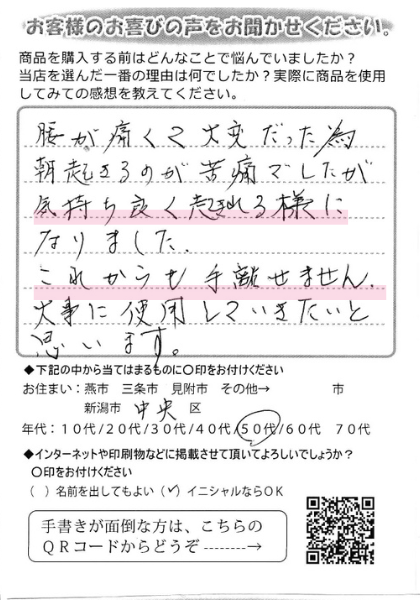 お客様のお喜びの声をお聞かせください。
商品を購入する前はどんなことで悩んでいましたか？
当店を選んだ一番の理由は何でしたか？実際に商品を使用
してみての感想を教えてください。
腰が痛くて大変だった為
朝起きるのが苦痛でしたが
気持ち良く起きれる様に
なりました.
これからも手離せません.
大事に使用していきたいと
思います。
◆下記の中から当てはまるものに〇印をお付けください
お住まい：燕市　三条市　見附市　その他→　　　　　市
新潟市　中央　区
年代：１０代/２０代/３０代/４０代/５０代/６０代　７０代
◆インターネットや印刷物などに掲載させて頂いてよろしいでしょうか？
〇印をお付けください
（　）名前を出してもよい（✓）イニシャルならＯＫ
手書きが面倒な方は、こちらの
ＱＲコードからどうぞ--------→